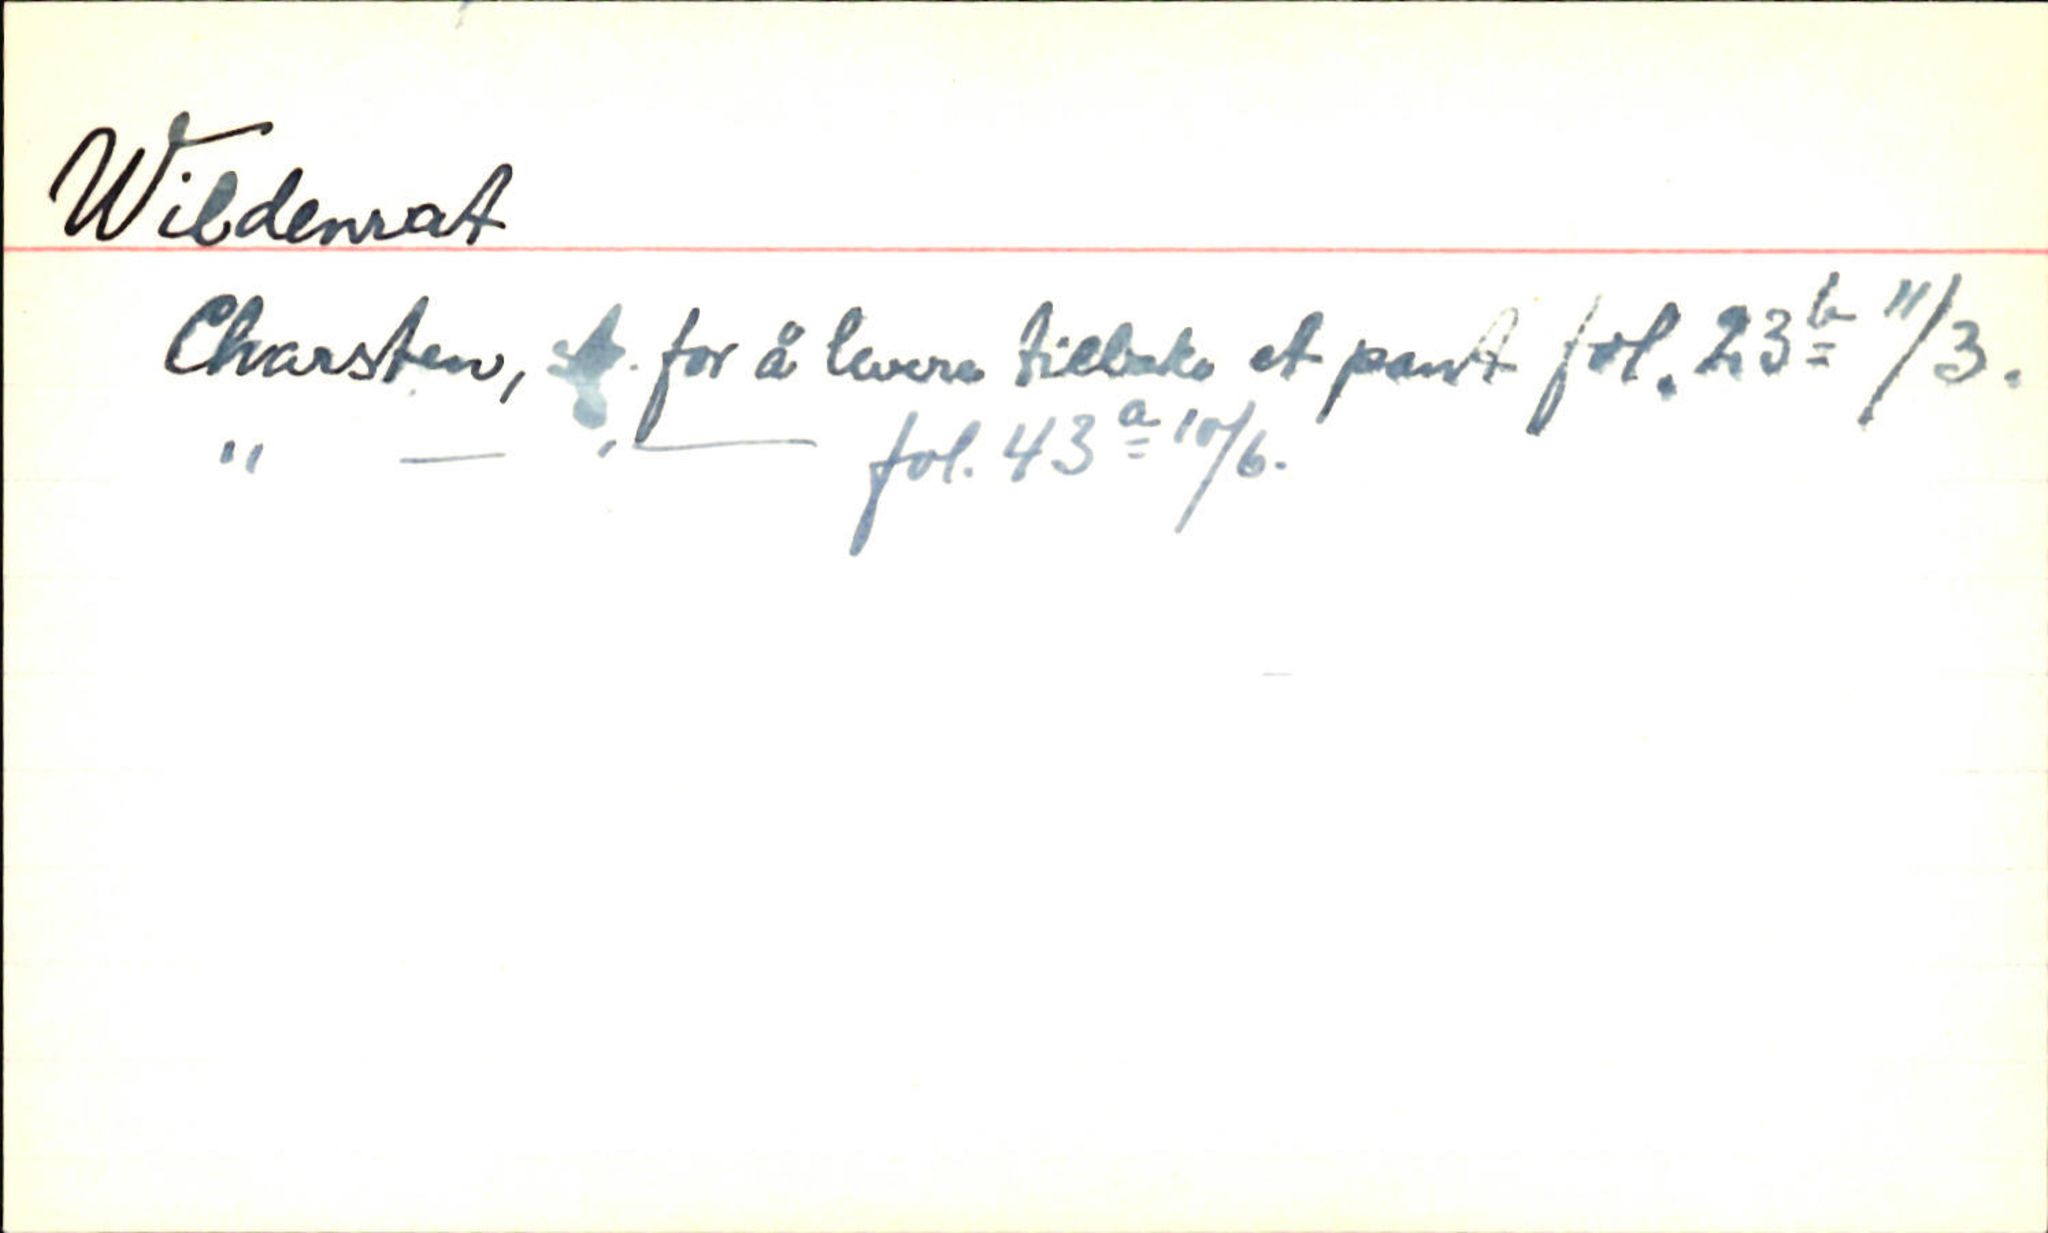 Wildenrat
Charsten, st. for å levere tilbake et pant fol. 23b 11/3.
" — , — fol. 43a 10/6.